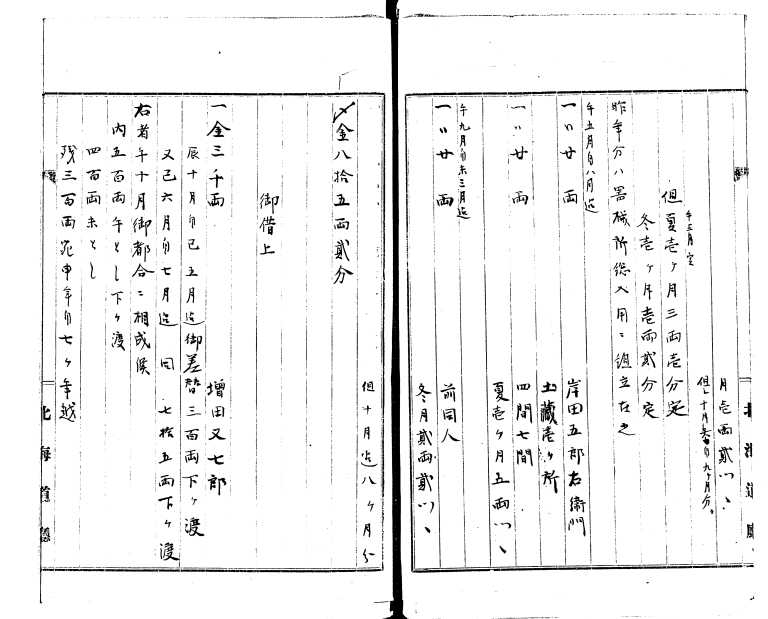 月壱両貳〃〃
但シ十月ゟ九ヶ月分。
午三月定
但夏壱ヶ月三両壱分定
冬壱ヶ月壱両貳分定
昨年分ハ器械所総入用ニ組立在之
午五月ゟ八月迄
一〃廿両 岸田五郎右衛門
土蔵壱ヶ所
一〃廿両 四間七間
夏壱ヶ月五両〃〃
午九月ゟ未三月迄
一〃廿両 前同人
冬月貳両貳〃〃
北海道廳
但十月迄八ヶ月分
〆金八拾五両貳分
御借上
一金三千両 増田又七郎
辰十月ゟ巳五月迄御差替三百両下ケ渡
又巳六月ゟ七月迄 同 七拾五両下ケ渡
右者午十月御都合ニ相成候
内五百両午とし下ケ渡
四百両未とし
残三百両宛申年ゟ七ヶ年越
北海道廳